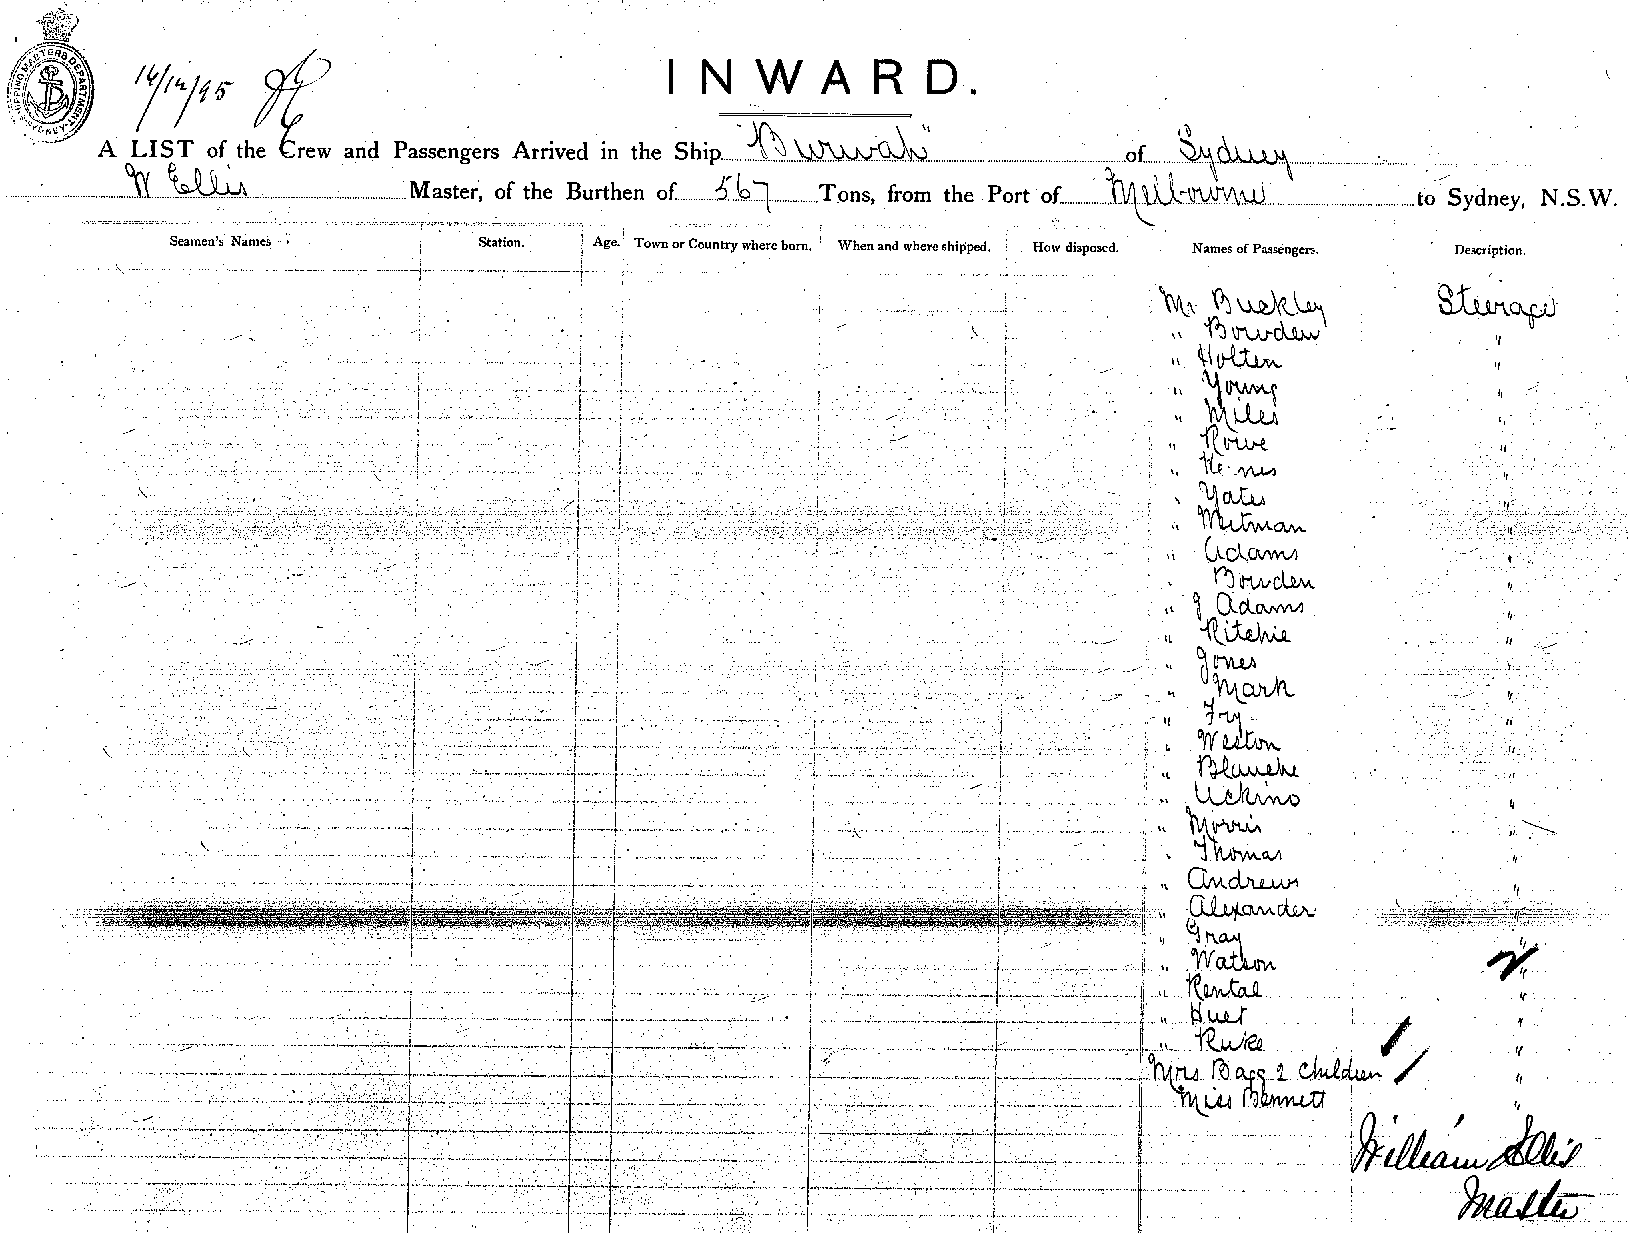 SHIPPING MASTERS DEPARTMENT SYDNEY
14/12/95
INWARD.
A LIST of the Crew and Passengers Arrived in the Ship "Burwah" of Sydney
W Ellis Master, of the Burthen of 567 Tons, from the Port of Melbourne to Sydney, N.S.W.
Seamen's Names Station. Age. Town or Country where born. When and where shipped. How disposed. Names of Passengers. Description.
Mr Buckley Steerage
" Bowden "
" Holten "
" Young "
" Miles "
" Rowe "
"
" Yates "
" Mitman "
" Adams "
" Bowden "
" J Adams "
" Ritchie "
" Jones "
" Mark "
" Fry "
" Weston "
" Blanche "
" Uckino "
" Morris "
" Thomas "
" Andrews "
" Alexander "
" Gray "
" Watson "
" Rental "
" Huet "
" Ruke "
Mrs Bagg 2 Children "
Miss Bennett "
William Ellis
Master